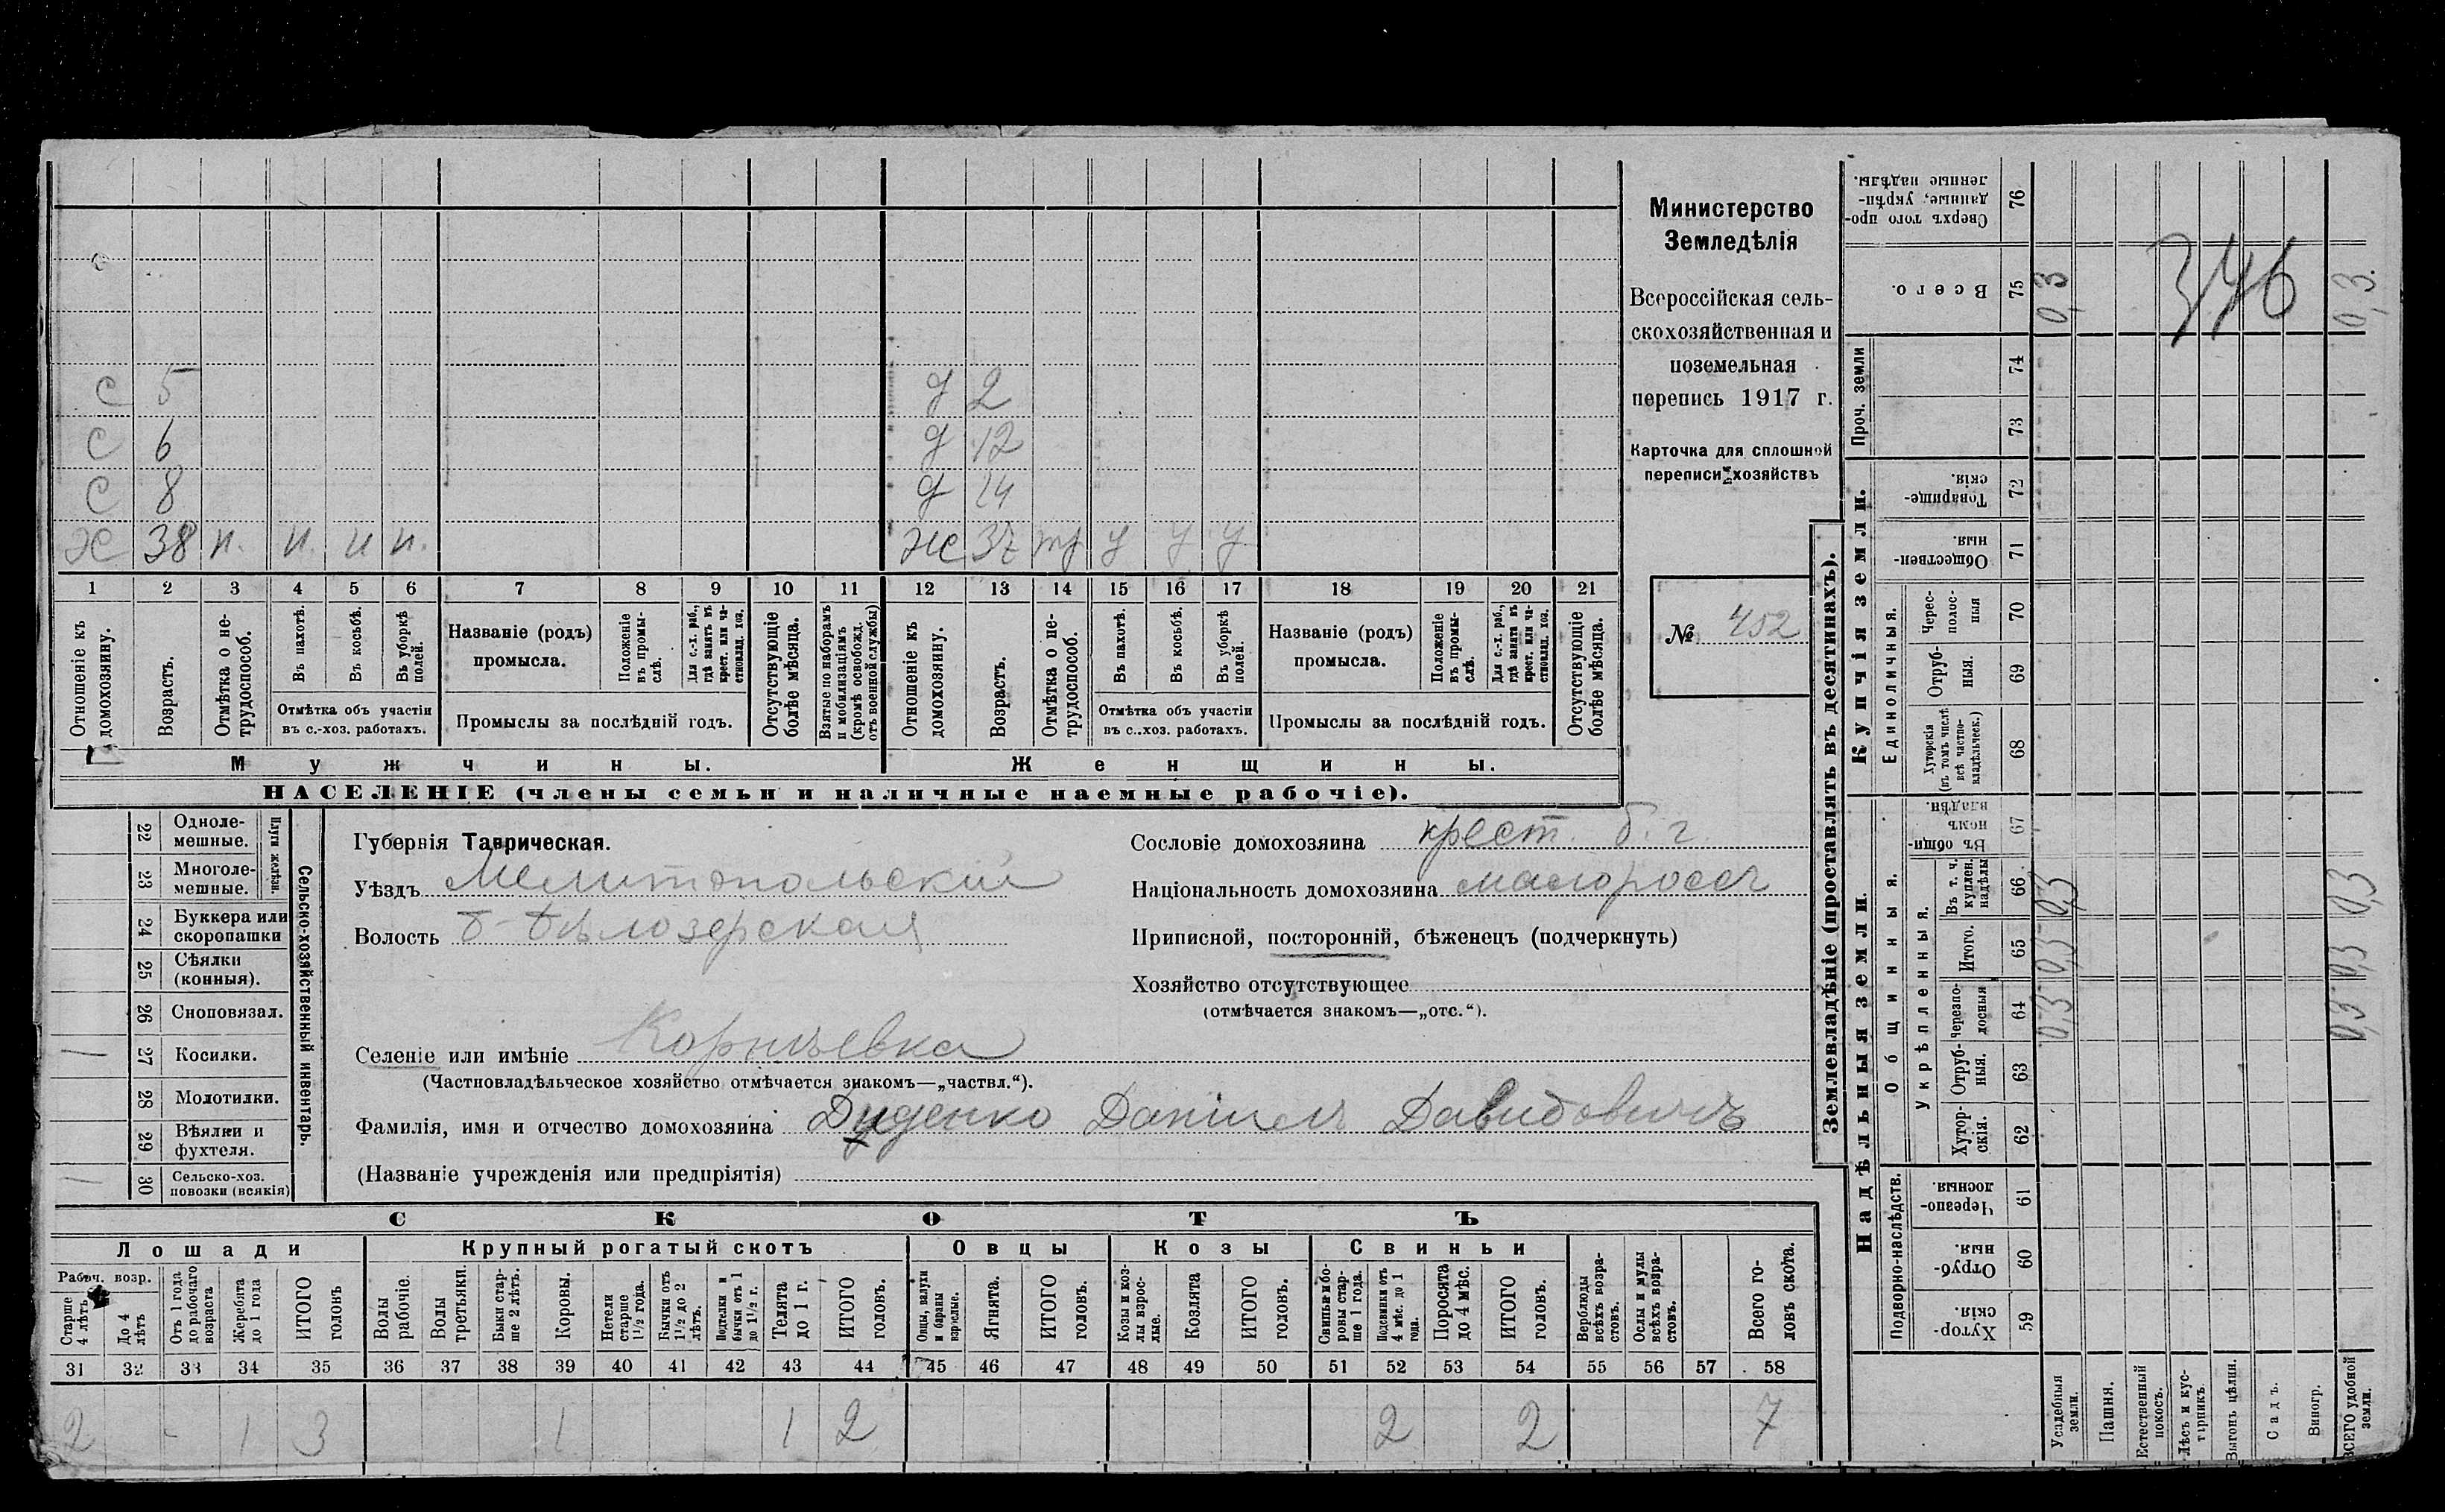 С 5 д 2
С 6 д 12
С 8 д 14
Х 38 п. п. п. п. Ж 37 у у у
1 2 3 4 5 6 7 8 9 10 11 12 13 14 15 16 17 18 19 20 21
Отношеніе къ домохозяину.
Возрастъ.
Отмѣтка о нетрудоспособ.
Въ пахотѣ.
Въ косьбѣ.
Въ уборкѣ полей.
Отмѣтка объ участіи
въ с.-хоз. работахъ.
Названіе (родъ)
промысла.
Положеніе въ промыслѣ.
Для с.-х. раб., гдѣ занятъ въ крест. или частновлад. хоз.
Промыслы за послѣдній годъ.
Отсутствующіе болѣе мѣсяца.
Взятые по наборамъ и мобилизаціямъ (кромѣ освобожд. отъ военной службы)
Отношеніе къ домохозяину.
Возрастъ.
Отмѣтка о нетрудоспособ.
Въ пахотѣ.
Въ косьбѣ.
Въ уборкѣ полей.
Отмѣтка объ участіи
въ с.-хоз. работахъ.
Названіе (родъ)
промысла.
Положеніе въ промыслѣ.
Для с.-х. раб., гдѣ занята въ крест. или частновлад. хоз.
Промыслы за послѣдній годъ.
Отсутствующіе болѣе мѣсяца.
Мужчины. Женщины.
НАСЕЛЕНІЕ (члены семьи и наличные наемные рабочіе).
Министерство
Земледѣлія
Всероссійская сель-
скохозяйственная и
поземельная
перепись 1917 г.
Карточка для сплошной
переписи хозяйствъ
№ 452
22 Одноле-
мешные.
23 Многоле-
мешные.
Плуги желѣзн.
24 Буккера или
скоропашки
25 Сѣялки
(конныя).
26 Сноповязал.
27 Косилки.
28 Молотилки.
29 Вѣялки и
фухтеля.
30 Сельско-хоз.
повозки (всякія)
Сельско-хозяйственный инвентарь.
Губернія Таврическая.
Уѣздъ Мелитопольскій
Волость Б-Бѣлозерская
Селеніе или имѣніе Корнѣевка
(Частновладѣльческое хозяйство отмѣчается знакомъ—„частвл.“).
Фамилія, имя и отчество домохозяина Диденко Даніилъ Давидовичъ
(Названіе учрежденія или предпріятія)
Сословіе домохозяина крест. б. г.
Національность домохозяина малороссъ
Приписной, посторонній, бѣженецъ (подчеркнуть)
Хозяйство отсутствующее
(отмѣчается знакомъ—„отс.“).
СКОТЪ
Лошади Крупный рогатый скотъ Овцы Козы Свиньи
Рабоч. возр.
Старше 4 лѣтъ
До 4 лѣтъ
Отъ 1 года до рабочаго возраста
Жеребята до 1 года
ИТОГО головъ
Волы рабочіе.
Волы третьяки.
Быки старше 2 лѣтъ.
Коровы.
Нетели старше 1½ года.
Бычки отъ 1½ до 2 лѣтъ.
Подтелки и бычки отъ 1 до 1½ г.
Телята до 1 г.
ИТОГО головъ.
Овцы, валухи и бараны взрослые.
Ягнята.
ИТОГО головъ.
Козы и козлы взрослые.
Козлята
ИТОГО головъ.
Свиньи и боровы старше 1 года.
Подсвинки отъ 4 мѣс. до 1 года.
Поросята до 4 мѣс.
ИТОГО головъ.
Верблюды всѣхъ возрастовъ.
Ослы и мулы всѣхъ возрастовъ.
Всего головъ скота.
31 32 33 34 35 36 37 38 39 40 41 42 43 44 45 46 47 48 49 50 51 52 53 54 55 56 57 58
2 - 1 3 1 1 2 2 2 7
Землевладѣніе (проставлять въ десятинахъ).
Надѣльныя земли. Купчія земли. Проч. земли
Подворно-наслѣдств. Общинныя. Единоличныя.
Укрѣпленныя.
59 Хуторскія
60 Отрубныя.
61 Черезполосныя.
62 Хуторскія.
63 Отрубныя.
64 Черезполосныя
65 Итого.
66 Въ т. ч. куплен. надѣлы
67 Въ общинномъ владѣн.
68 Хуторскія (въ томъ числѣ всѣ частновладѣльческ.)
69 Отрубныя.
70 Чересполосныя
71 Общественныя.
72 Товарищескія.
73
74
75 Всего.
76 Сверхъ того проданные, укрѣпленные надѣлы.
Усадебныя земли. 0,3 0,3 0,3 0,3
Пашня.
Естественный покосъ.
Лѣсъ и кустарникъ.
Выгонъ цѣлин.
Садъ.
Виногр.
ВСЕГО удобной земли. 0,3 0,3 0,3 0,3.
346